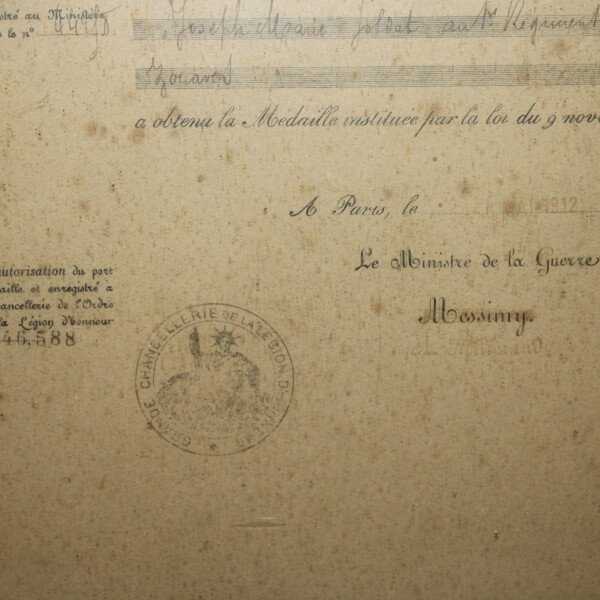 stré au Ministère
le n°
Joseph Marie Soldat au 1er Régiment
Zouaves
a obtenu la Médaille instituée par la loi du 9 nove
A Paris, le 1912
Le Ministre de la Guerre
Messimy.
autorisation du port
aille et enregistré à
hancellerie de l'Ordre
la Légion d'Honneur
46,588
GRANDE CHANCELLERIE DE LA LEGION D'HONNEUR